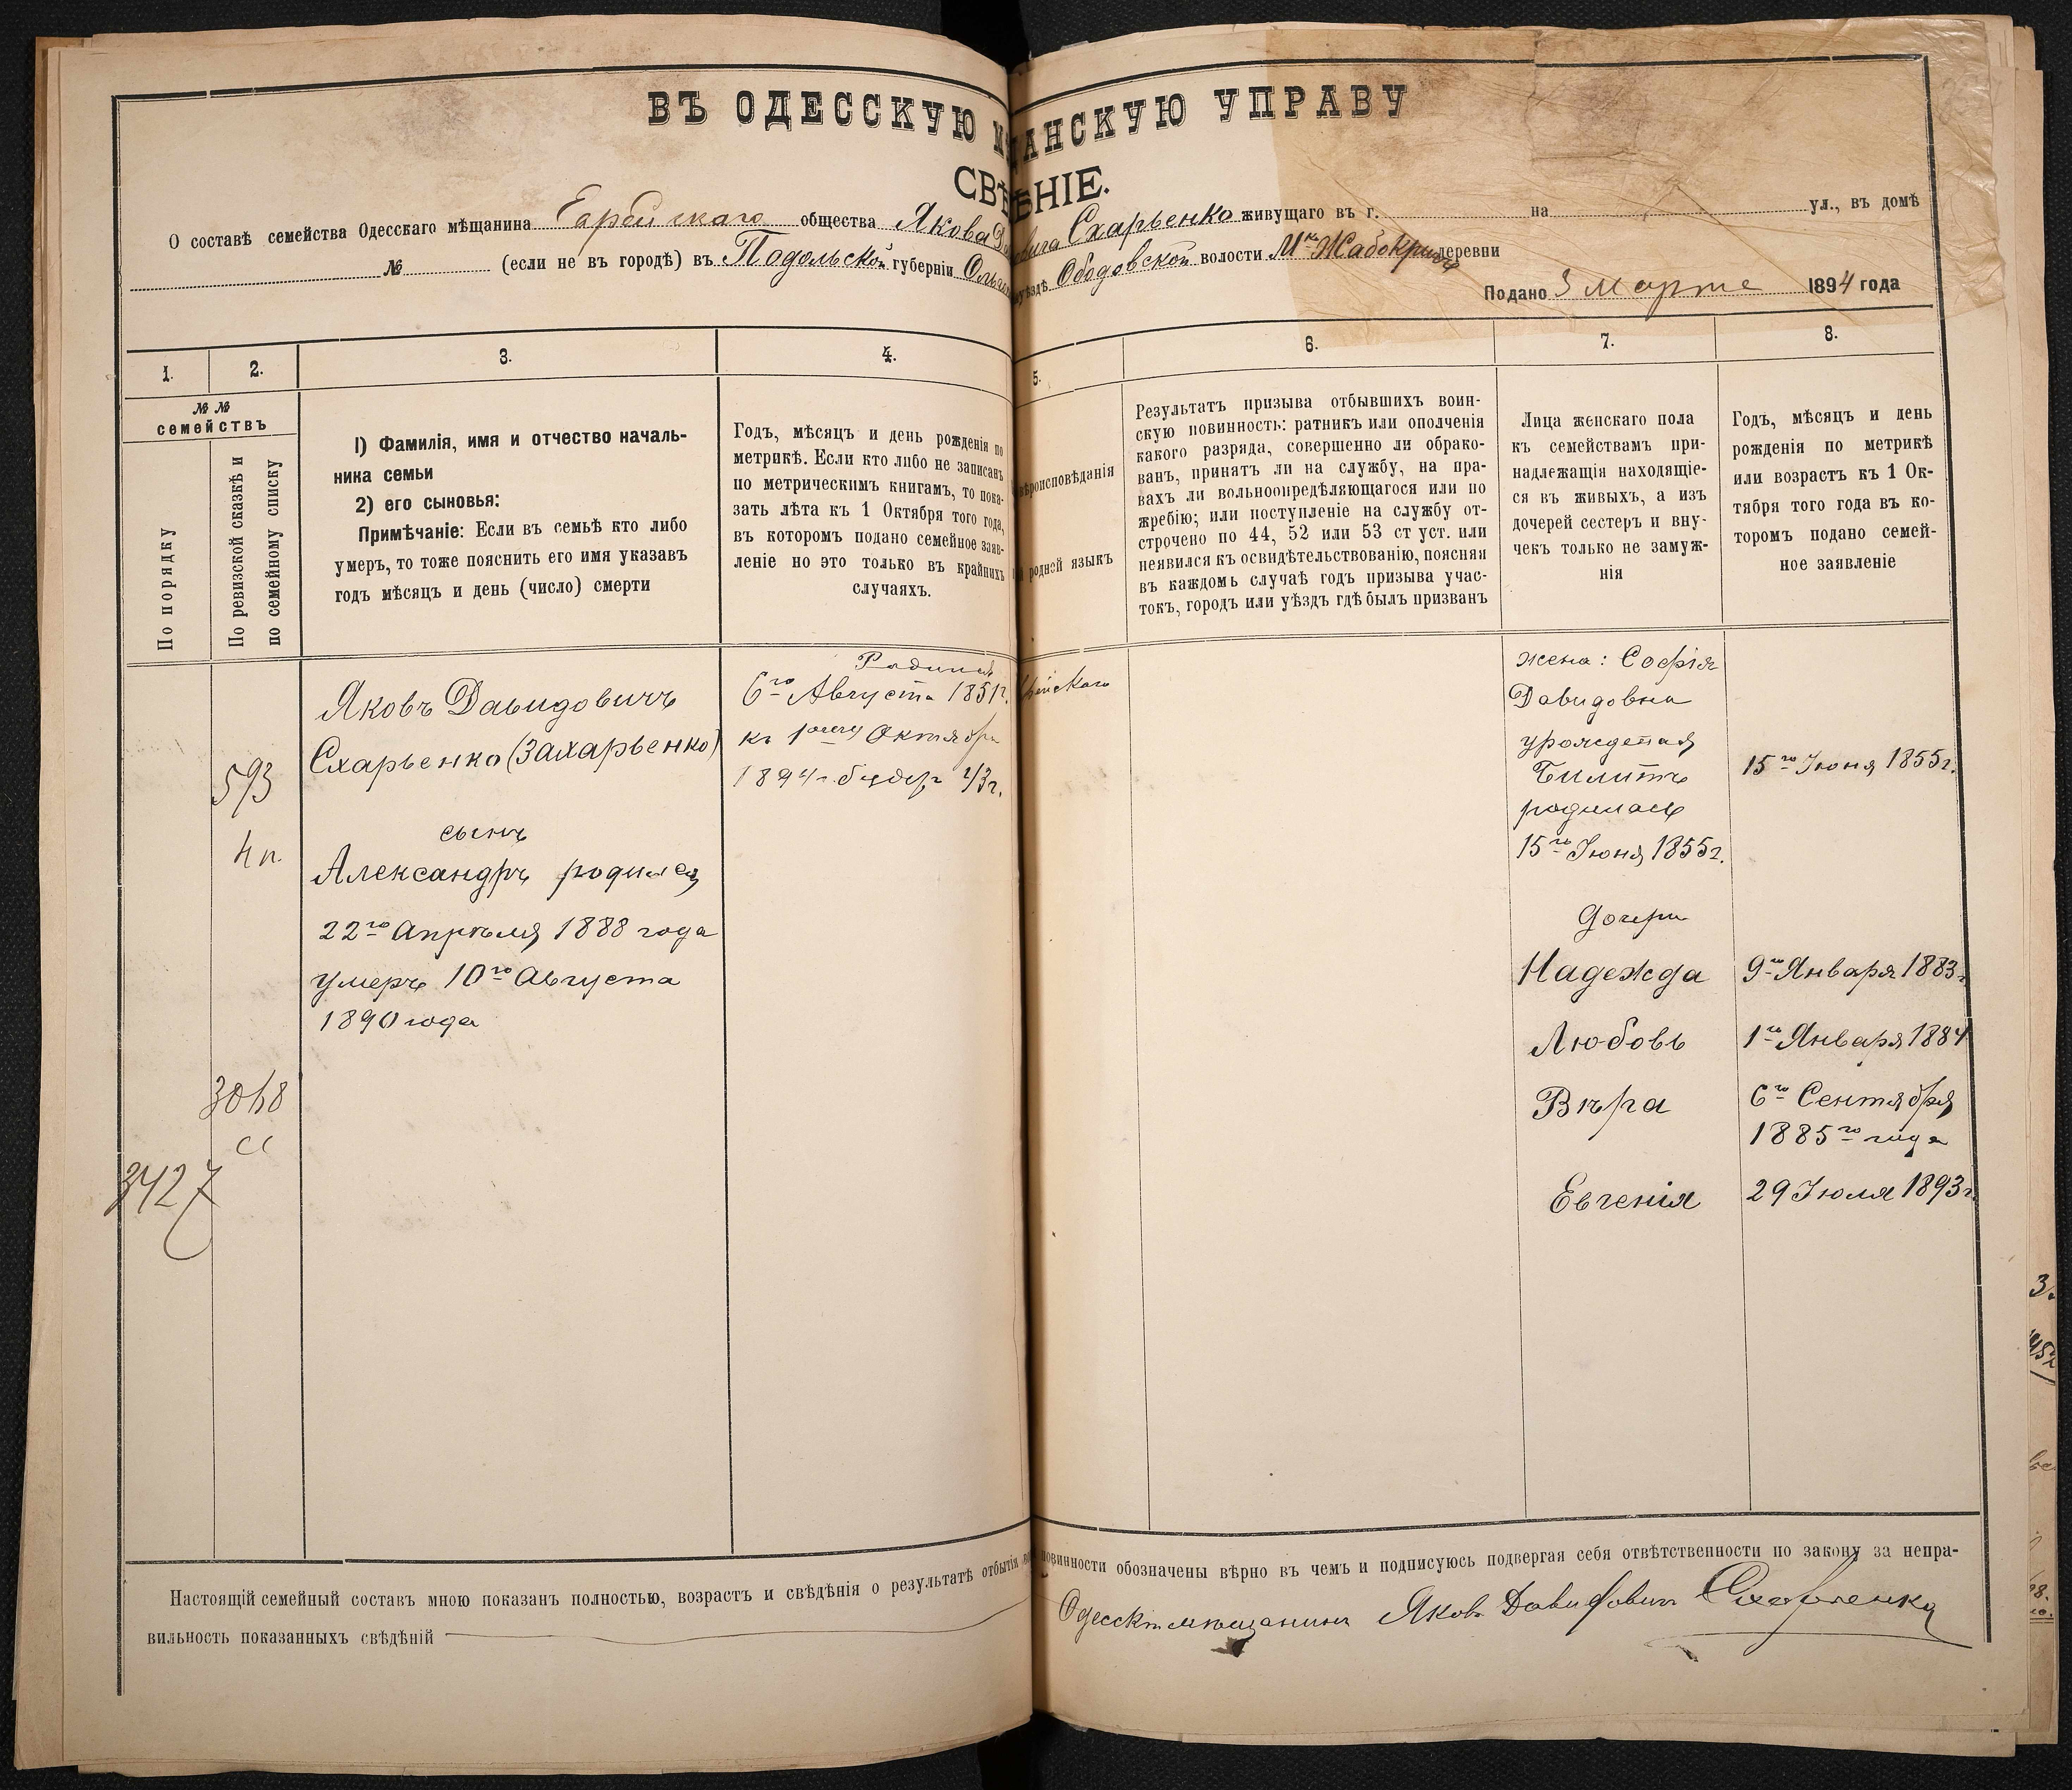 ВЪ ОДЕССКУЮ М ЩАНСКУЮ УПРАВУ
СВѢ ѢНІЕ.
О составѣ семейства Одесскаго мѣщанина общества Якова Схарьенко живущаго въ г. на ул., въ домѣ
№ (если не въ городѣ) въ Подольской губерніи уѣздѣ Ободовской волости Мкѣ Жабокричѣ деревни
Подано 3 марта 1894 года
1.
2.
3.
4.
5.
6.
7.
8.
№ №
семействъ
По порядку
По ревизской сказкѣ и
по семейному списку
1) Фамилія, имя и отчество началь-
ника семьи
2) его сыновья:
Примѣчаніе: Если въ семьѣ кто либо
умеръ, то тоже пояснить его имя указавъ
годъ мѣсяцъ и день (число) смерти
Годъ, мѣсяцъ и день рожденія по
метрикѣ. Если кто либо не записанъ
по метрическимъ книгамъ, то пока-
зать лѣта къ 1 Октября того года,
въ которомъ подано семейное заяв-
леніе но это только въ крайнихъ
случаяхъ.
вѣроисповѣданія
родной языкъ
Результатъ призыва отбывшихъ воин-
скую повинность: ратникъ или ополченія
какого разряда, совершенно ли обрако-
ванъ, принятъ ли на службу, на пра-
вахъ ли вольноопредѣляющагося или по
жребію; или поступленіе на службу от-
строчено по 44, 52 или 53 ст уст. или
неявился къ освидѣтельствованію, поясняя
въ каждомъ случаѣ годъ призыва учас-
токъ, городъ или уѣздъ гдѣ былъ призванъ
Лица женскаго пола
къ семействамъ при-
надлежащія находящіе-
ся въ живыхъ, а изъ
дочерей сестеръ и вну-
чекъ только не замуж-
нія
Годъ, мѣсяцъ и день
рожденія по метрикѣ
или возрастъ къ 1 Ок-
тября того года въ ко-
торомъ подано семей-
ное заявленіе
593
3427
Яковъ Давидовичъ
Схарьенко (Захарьенко)
сынъ
Александръ родился
22го Апрѣля 1888 года
умеръ 10го Августа
1890 года
Родился
6го Августа 1851г.
къ 1ому Октября
1894 г. будетъ 43 г.
жена: Софія
Давидовна
урожденая
Билитъ
родилась
15го Іюня 1855г.
15го Іюня 1855г.
дочери
Надежда
9го Января 1883г.
Любовь
1го Января 1884
Вѣра
6го Сентября
1885го года
Евгенія
29 Іюля 1893г.
Настоящій семейный составъ мною показанъ полностью, возрастъ и свѣдѣнія о результатѣ отбытія повинности обозначены вѣрно въ чемъ и подписуюсь подвергая себя отвѣтственности по закону за непра-
вильность показанныхъ свѣдѣній Одесскій мѣщанинъ Яковъ Давидовичъ Схарьенко